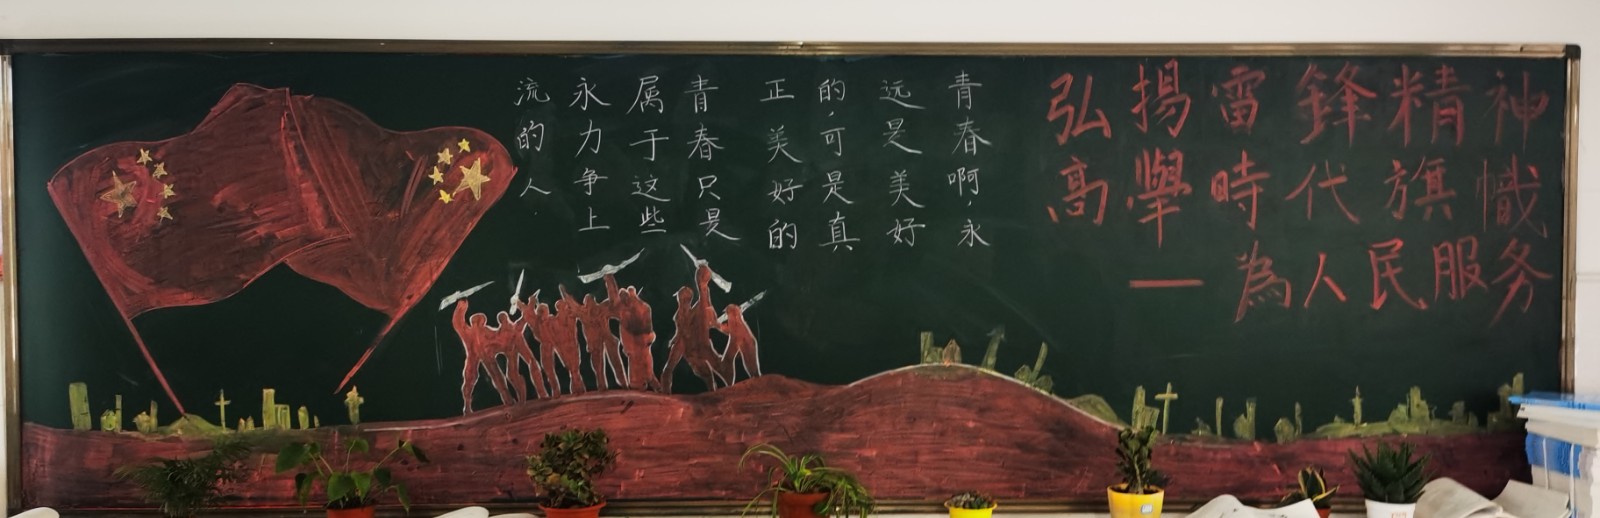 弘揚雷鋒精神
高舉時代旗幟
—為人民服务
青春啊，永
远是美好
的，可是真
正美好的
青春只是
属于这些
永力争上
流的人.